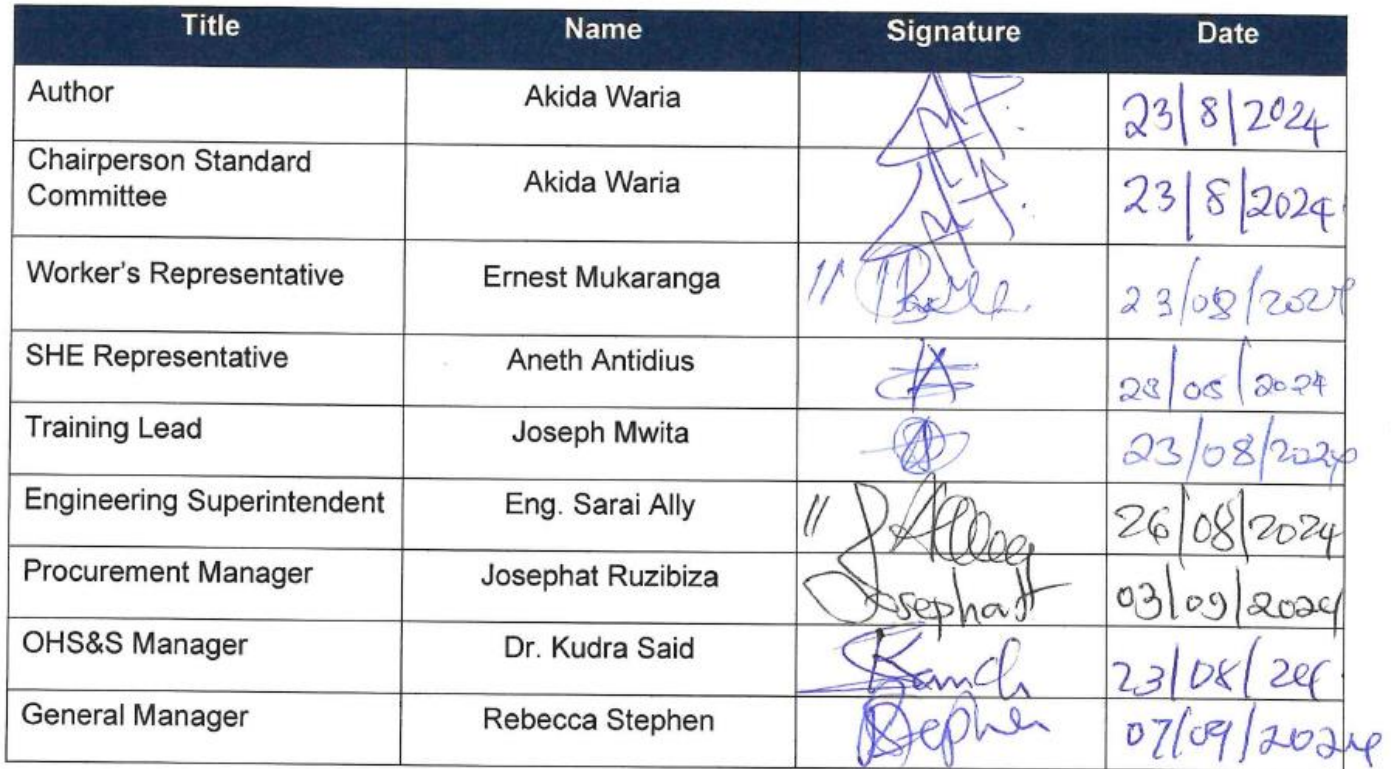 Title Name Signature Date
Author Akida Waria 23/8/2024
Chairperson Standard
Committee Akida Waria 23/8/2024
Worker's Representative Ernest Mukaranga // 23/08/2024
SHE Representative Aneth Antidius 2024
Training Lead Joseph Mwita 23/08/2024
Engineering Superintendent Eng. Sarai Ally // 26/08/2024
Procurement Manager Josephat Ruzibiza Josephat 03/09/2024
OHS&S Manager Dr. Kudra Said 23/08/24
General Manager Rebecca Stephen Stephen 07/09/2024